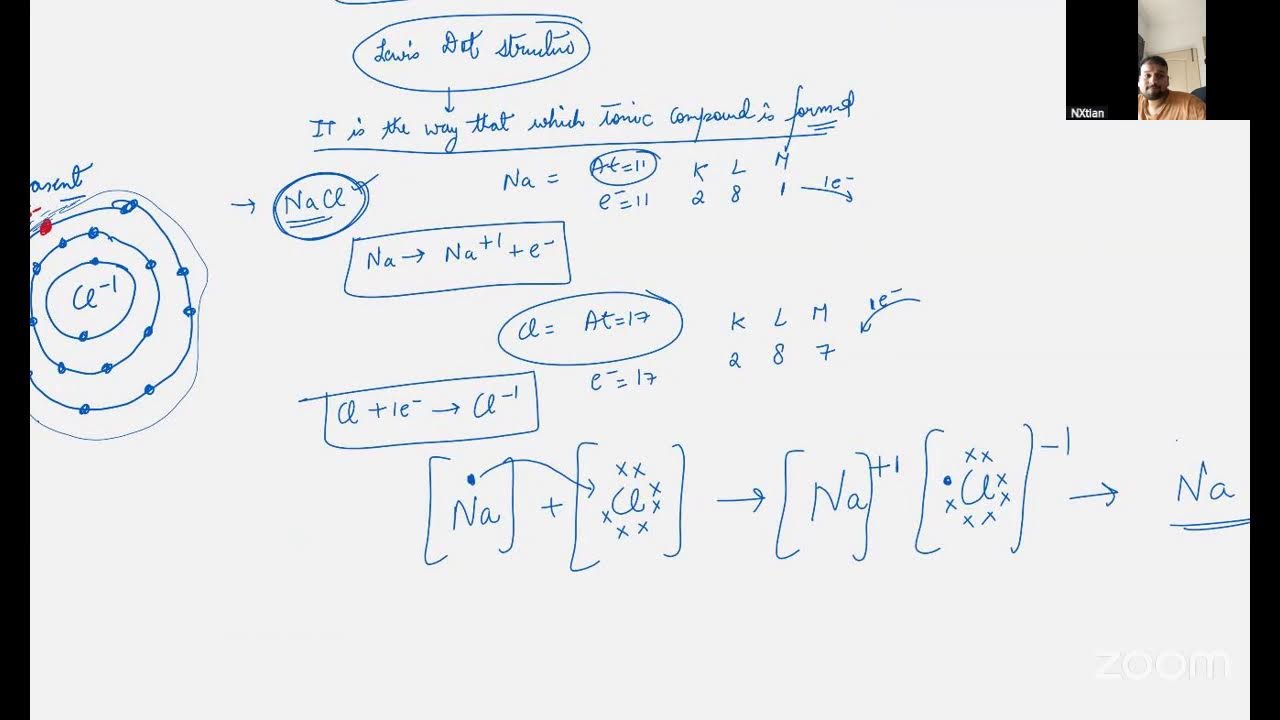 Lewis Dot structure
It is the way that which Ionic compound is formed
asent
→ NaCl
Na = At=11 K L M
e⁻=11 2 8 1 1e⁻
Na → Na⁺¹ + e⁻
Cl⁻¹
Cl = At=17 K L M 1e⁻
e⁻=17 2 8 7
Cl + 1e⁻ → Cl⁻¹
[Na] + [Cl] → [Na]⁺¹ [Cl]⁻¹ → Na
NXtian
zoom